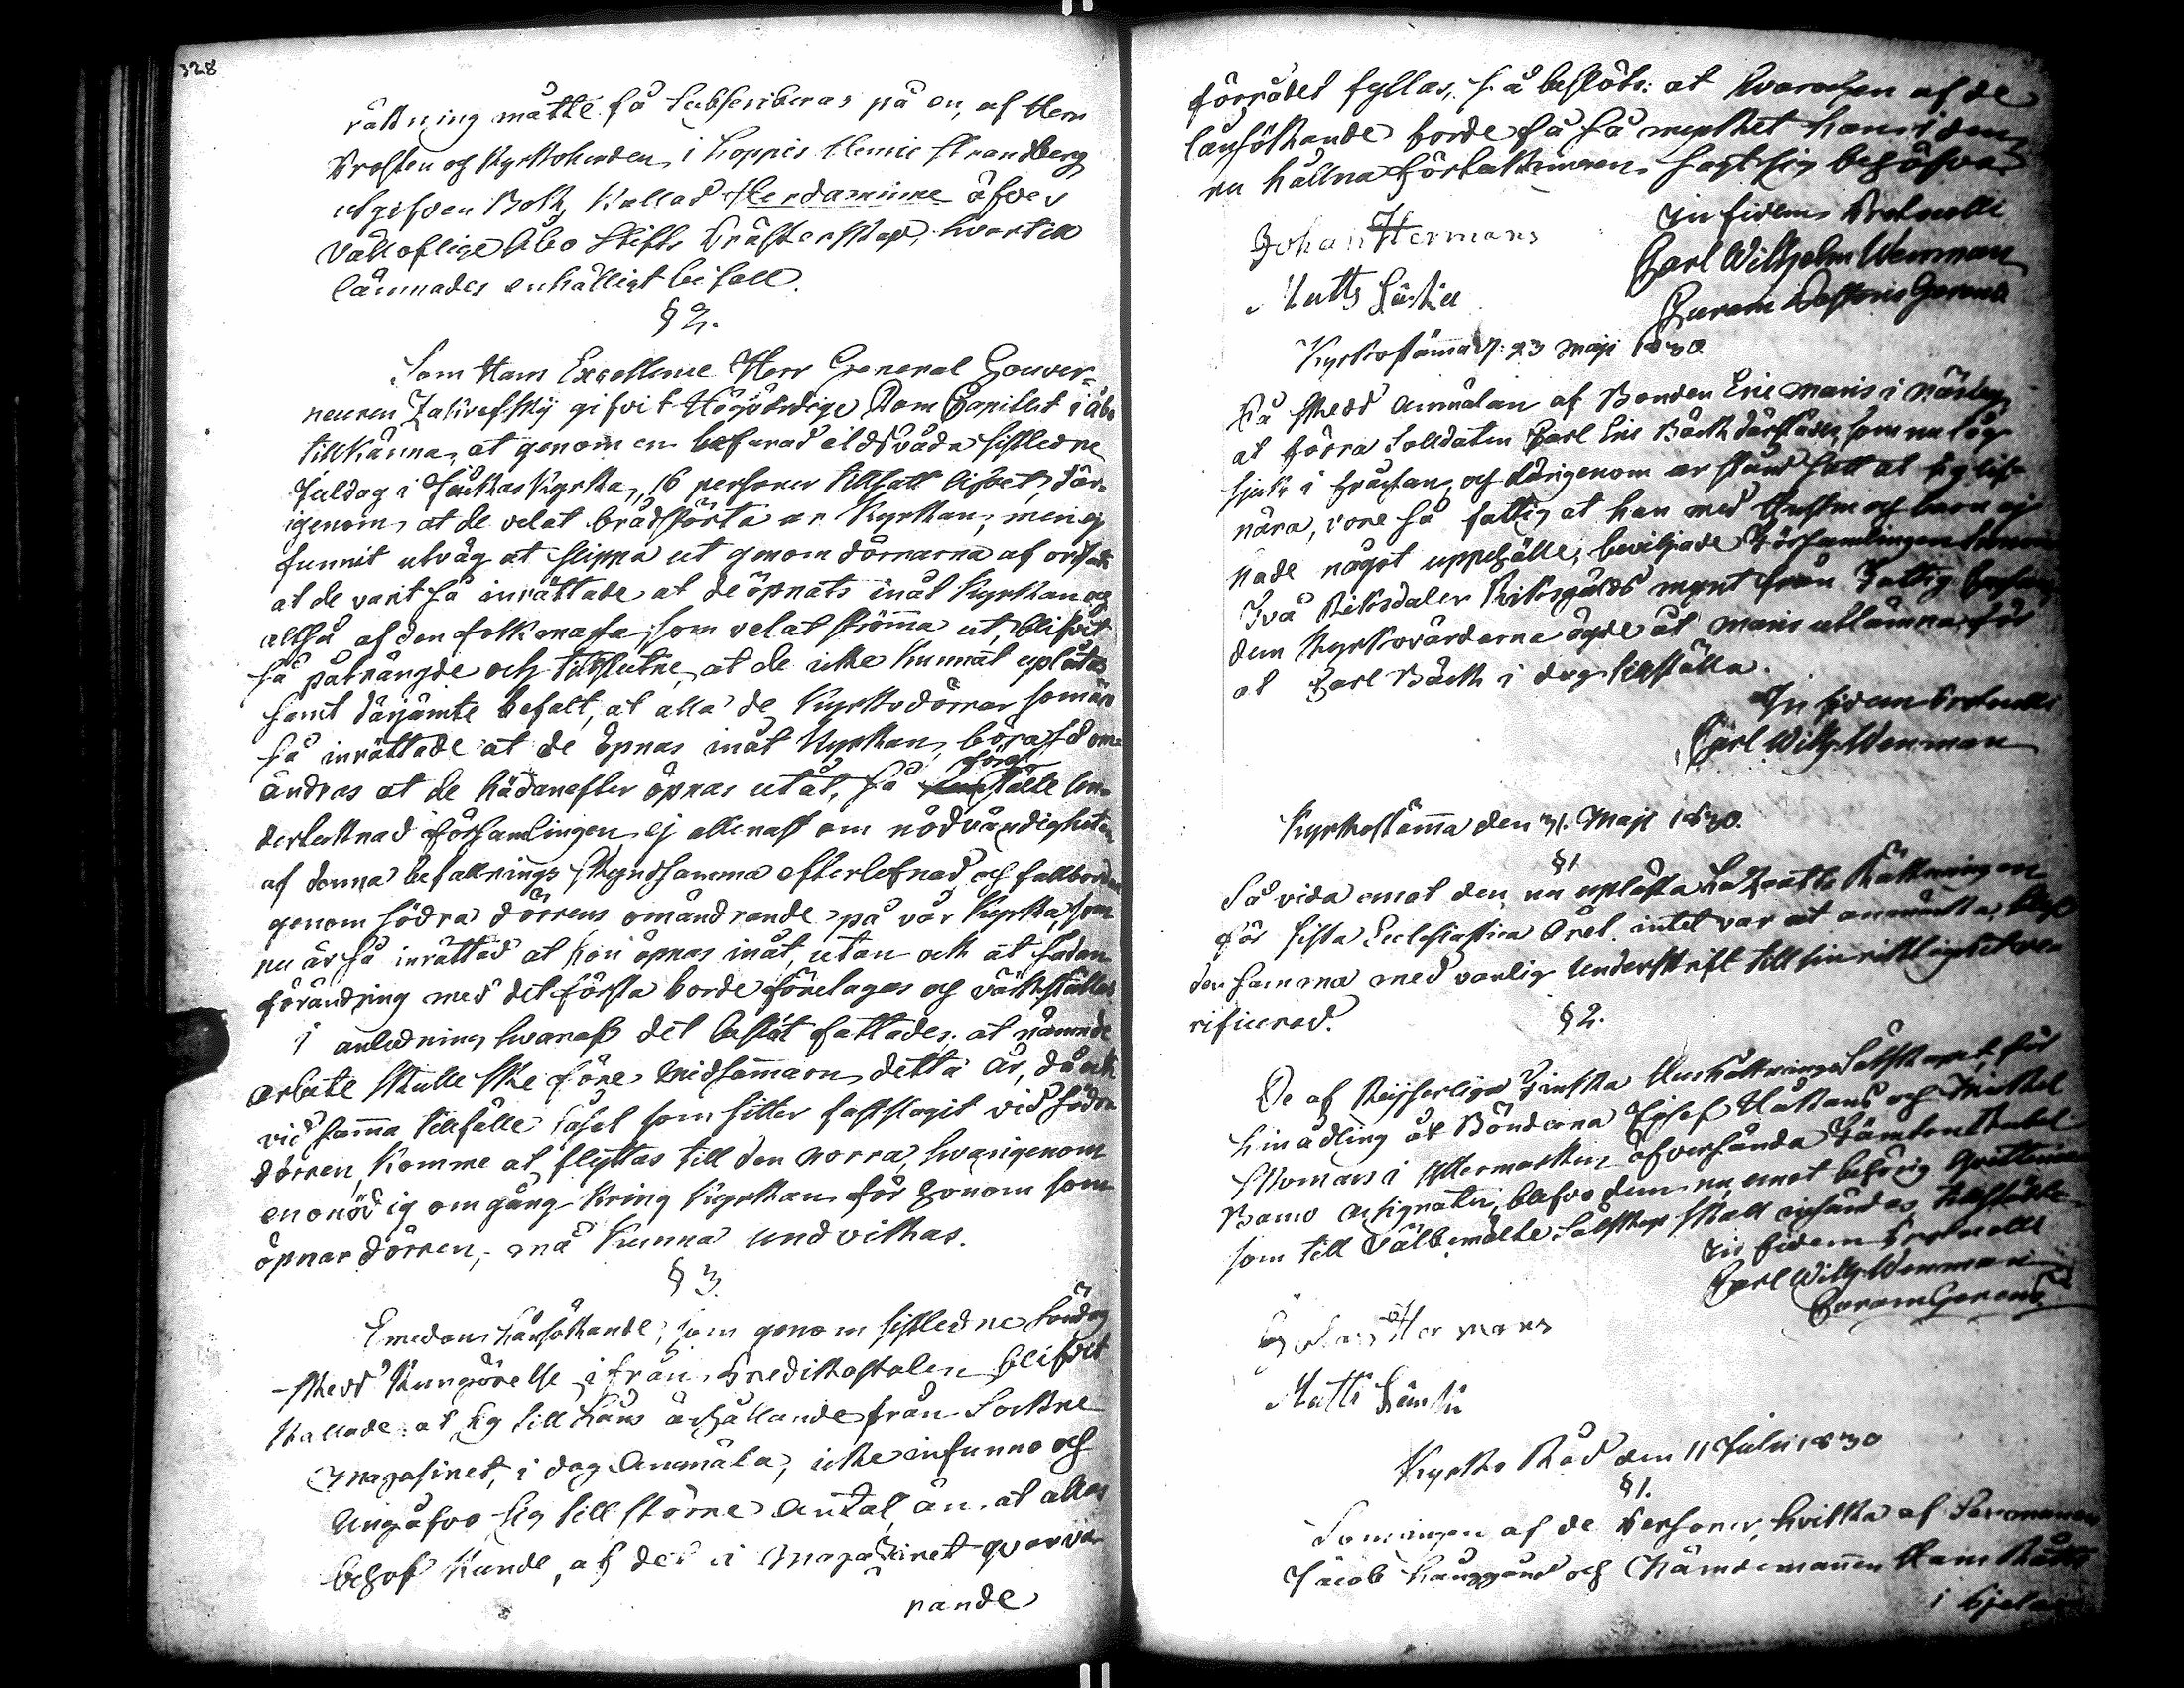 328
rättning måtte få Subscriberas på en, af Herr
Prosten og Kyrkoherden i Loppis Henric Strandberg
utgifven Bok, Kallad Herdaminne öfver
Välloflige Åbo Stifts Prästerskap, hvartill
lämnades enhälligt bifall.
§ 2.
Som Hans Excellence Herr General Gouver-
neuren Zakrefskij gifvit Högvördige Dom Capitlet i Åbo
tillkänna, at genom en befarad eldsvåda sistledne
Juldag i Kyrka, 16 personer tillsatt lifvet, där-
igenom, at de velat brådstörta ur Kyrkan, men ej
funnit utväg at slippa ut genom dörrarna af orsak
at de varit så inrättade at de öpnats inåt Kyrkan og
altså af den folkmassa, som velat strömma ut, blifvit
så påträngde och tillslutne, at de icke kunnat uplåtas
samt därjämte befalt, at alla de Kyrkodörrar som är
så inrättade at de öpnas inåt Kyrkan, böra så om-
ändras at de hädanefter öpnas utåt, Så förestälte un-
dertecknad församlingen, ej allenast om nödvändigheten
af denna befallnings skyndsamma efterlefnad och fullbordan
genom södra dörrens omändrande på vår Kyrka, som
nu är så inrättad at hon öpnas inåt, utan ock at sådan
förändring med det första borde företagas og värkställas
i anledning hvaraf det beslut fattades, at nämnde
arbete skulle ske före Midsommaren detta år, då ock
vid samma tillfälle låset som sitter fastslagit vid södra
dörren, Komme at flyttas till den norra, hvarigenom
en onödig omgång kring Kyrkan för honom som
öpnar dörren, må kunna undvikas.
§ 3.
Emedan Lånsökande, som genom sistledne Söndag
skedd Kungörelse ifrån Predikostolen blifvit
Kallade at sig till Låns ärhållande från Sockne
Magasinet, i dag Anmäla, icke infunno och
Angåfvo sig till större Antal, än at allas
behof kunde, af det i Magasinet qvarva-
rande
förrådet fyllas, Så beslöts: at hvarochen af de
lånsökande borde få så mycket han i den
nu hållna Förteckningen sagt sig behöfva
In fidem Protocolli
Johan Hermans
Carl Wilhelm Wenman
Matts
Curam Pastoris Gerens
Kyrkostämma d. 23 Maji 1830.
På skedd Anmälan af Bonden Eric Mans i Närby
at förra Solldaten Carl Eric Bäck därstädes som nu låg
sjuk i fråssan, och därigenom ur stånd satt at sig lif-
nära, vore så fattig at han med Hustru och barn ej
hade något uppehälle, beviljade Församlingen honom
Två Riksdaler Riksgälds mynt från Fattig Cassan,
dem Kyrkovärdarne ägde åt Mans utlämna för
at Carl Bäck i dag tillställa.
In fidem Protocolli
Carl Wilh. Wenman
Kyrkostämma den 31. Maji 1830.
§ 1
Så vida emot den nu uplästa Räkningen
för sista Ecclesiastica Året intet var at anmärka, blef
den samma med vanlig Underskrift till sin riktighet ve-
rificerad.
§ 2.
De af Kejserliga Finska Hushållnings Sälskapet för
åt Bönderna och Michel
i Yttermark öfversända
Banco Assignater, blefvo dem nu emot behörig Qvittence
som till Välbemälte Sälskap skall insändas, tillstälde.
In fidem Protocolli
Carl Wilh. Wenman
Curam Gerens
Johan Hermans
Matts
Kyrko Råd den 11 Julii 1830
§ 1.
Som ingen af de Personer, hvilka af Sexmannen
Jacob och Nämndemannen
i